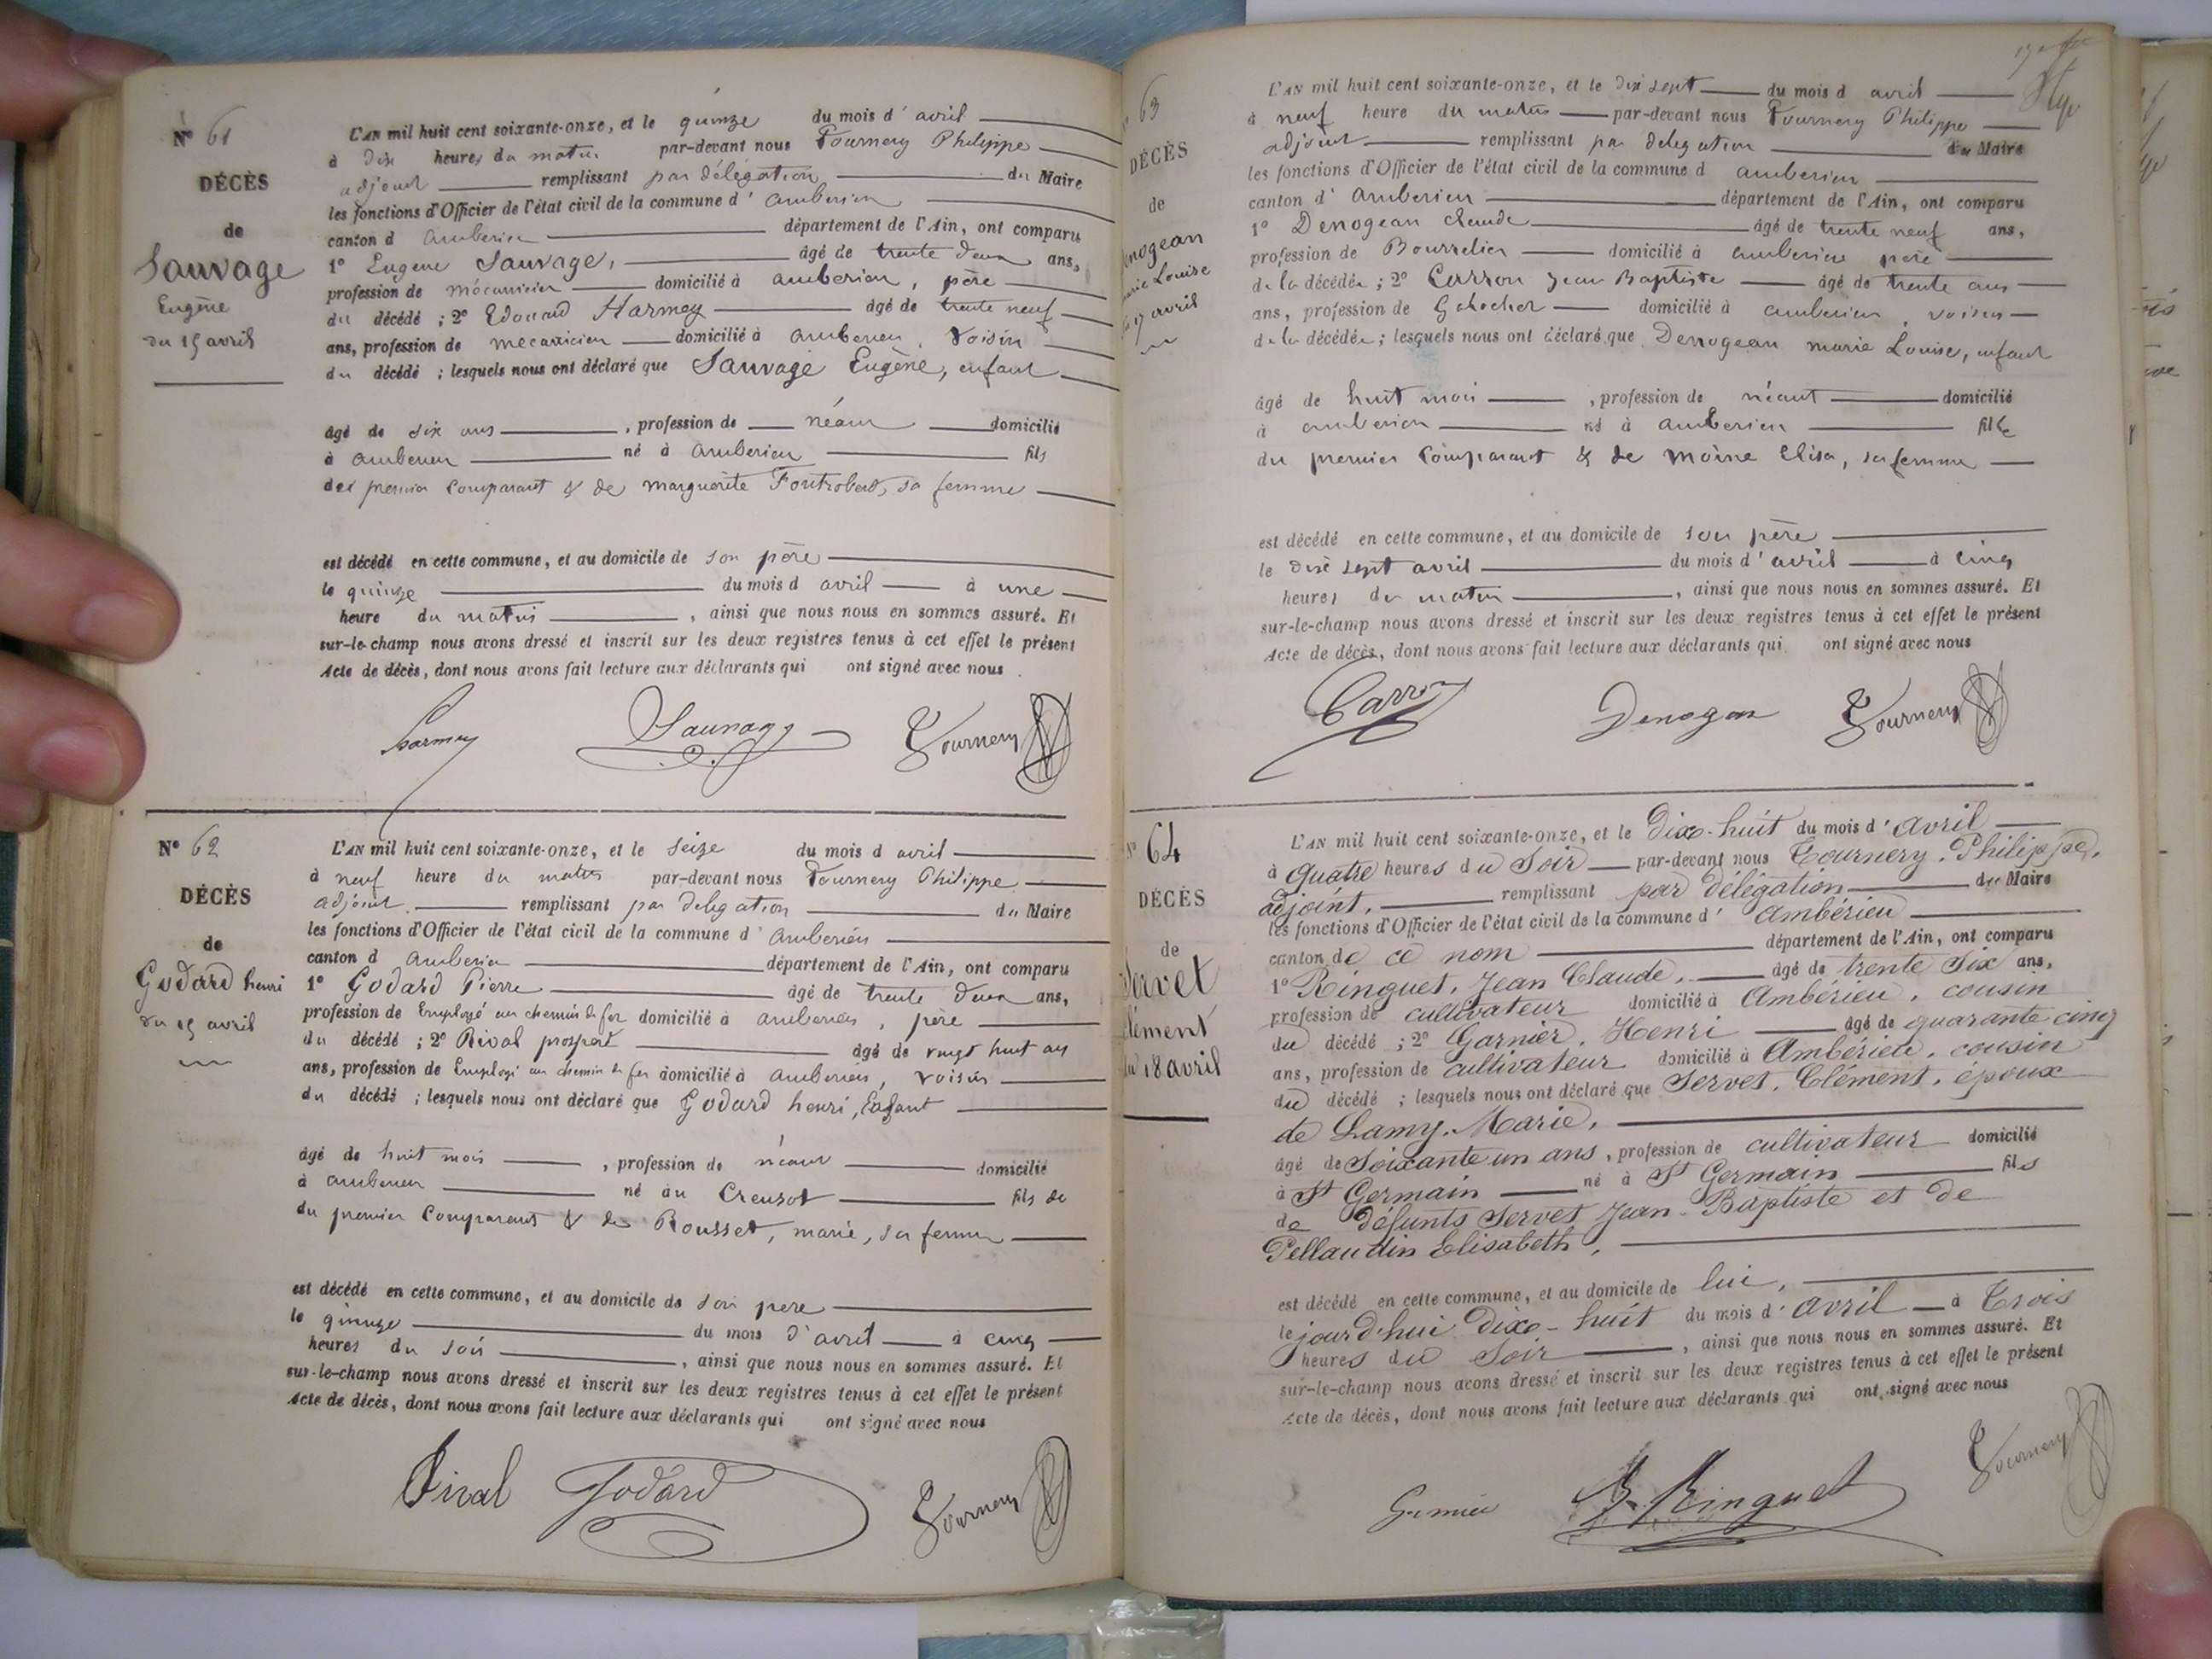 N° 61
DÉCÈS
de
Sauvage
Eugène
du 15 avril
L'AN mil huit cent soixante-onze, et le quinze du mois d' avril
à dix heures du matin par-devant nous Tournery Philippe
adjoint remplissant par délégation du Maire
les fonctions d'Officier de l'état civil de la commune d' amberieu
canton d amberieu département de l'Ain, ont comparu
1° Eugene Sauvage, âgé de trente deux ans,
profession de mécanicien domicilié à amberieu, père
du décédé ; 2° Edouard Harmey âgé de trente neuf
ans, profession de mecanicien domicilié à amberieu, voisin
du décédé ; lesquels nous ont déclaré que Sauvage Eugène, enfant
âgé de six ans, profession de néant domicilié
à amberieu né à amberieu fils
du premier comparant & de marguerite Fontrobert, sa femme
est décédé en cette commune, et au domicile de son père
le quinze du mois d avril à une
heure du matin, ainsi que nous nous en sommes assuré. Et
sur-le-champ nous avons dressé et inscrit sur les deux registres tenus à cet effet le présent
Acte de décès, dont nous avons fait lecture aux déclarants qui ont signé avec nous
Harmey Sauvage Tournery
N° 62
DÉCÈS
de
Godard henri
du 15 avril
L'AN mil huit cent soixante-onze, et le seize du mois d avril
à neuf heure du matin par-devant nous Tournery Philippe
adjoint remplissant par delegation du Maire
les fonctions d'Officier de l'état civil de la commune d' amberieu
canton d amberieu département de l'Ain, ont comparu
1° Godard Pierre âgé de trente deux ans,
profession de Employé au chemin de fer domicilié à amberieu, père
du décédé ; 2° Rival prospert âgé de vingt huit ans
ans, profession de Employé au chemin de fer domicilié à amberieu, voisin
du décédé ; lesquels nous ont déclaré que Godard henri, Enfant
âgé de huit mois, profession de néant domicilié
à amberieu né au Creusot fils de
du premier comparant & de Rousset, marie, sa femme
est décédé en cette commune, et au domicile de son pere
le quinze du mois d'avril à cinq
heures du soir, ainsi que nous nous en sommes assuré. Et
sur-le-champ nous avons dressé et inscrit sur les deux registres tenus à cet effet le présent
Acte de décès, dont nous avons fait lecture aux déclarants qui ont signé avec nous
Rival Godard Tournery
63
DÉCÈS
de
enogean
arie Louise
du 17 avril
L'AN mil huit cent soixante-onze, et le dix sept du mois d avril
à neuf heure du matin par-devant nous Tournery Philippe
adjoint remplissant par delegation du Maire
les fonctions d'Officier de l'état civil de la commune d amberieu
canton d' amberieu département de l'Ain, ont comparu
1° Denogean claude âgé de trente neuf ans,
profession de Bourrelier domicilié à amberieu père
de la décédée ; 2° Carron Jean Baptiste âgé de trente ans
ans, profession de Galocher domicilié à amberieu, voisin
de la décédée ; lesquels nous ont déclaré que Denogean marie Louise, enfant
âgé de huit mois, profession de néant domicilié
à amberieu né à amberieu fille
du premier comparant & de moine Elisa, sa femme
est décédé en cette commune, et au domicile de son père
le dix sept avril du mois d'avril à cinq
heures du matin, ainsi que nous nous en sommes assuré. Et
sur-le-champ nous avons dressé et inscrit sur les deux registres tenus à cet effet le présent
Acte de décès, dont nous avons fait lecture aux déclarants qui ont signé avec nous
Carron Denogean Tournery
N° 64
DÉCÈS
de
Servet
Clément
du 18 avril
L'AN mil huit cent soixante-onze, et le Dix-huit du mois d' avril
à quatre heures du Soir par-devant nous Tournery, Philippe,
adjoint, remplissant par délégation du Maire
les fonctions d'Officier de l'état civil de la commune d' Ambérieu
canton de ce nom département de l'Ain, ont comparu
1° Ringuet, Jean Claude, âgé de trente six ans,
profession de cultivateur domicilié à Ambérieu, cousin
du décédé ; 2° Garnier, Henri âgé de quarante cinq
ans, profession de cultivateur domicilié à Ambérieu, cousin
du décédé ; lesquels nous ont déclaré que Servet, Clément, époux
de Lamy, Marie,
âgé de Soixante un ans, profession de cultivateur domicilié
à St Germain né à St Germain fils
de défunts Servet Jean-Baptiste et de
Pellaudin Elisabeth,
est décédé en cette commune, et au domicile de lui,
le jourd'hui Dix-huit du mois d' avril à Trois
heures du Soir, ainsi que nous nous en sommes assuré. Et
sur-le-champ nous avons dressé et inscrit sur les deux registres tenus à cet effet le présent
Acte de décès, dont nous avons fait lecture aux déclarants qui ont signé avec nous
Garnier Ringuet Tournery